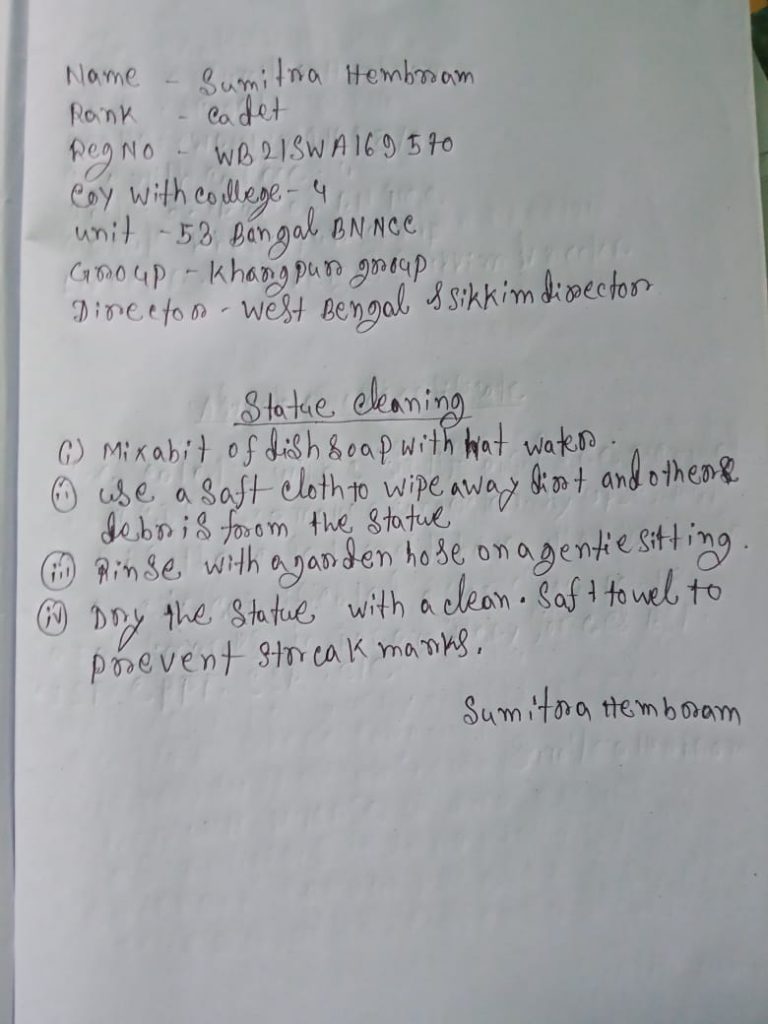 Name - Sumitra Hembram
Rank - Cadet
Reg No - WB21SWA169570
Coy with college - 4
unit - 53 Bangal BN NCC
Group - Kharagpur group
Director - West Bengal & sikkim director
Statue cleaning
(i) Mix a bit of dish soap with hat water.
(ii) use a saft cloth to wipe away dirt and others
debris from the statue
(iii) Rinse with a garden hose on a gentie sitting.
(iv) Dry the statue with a clean. saft towel to
prevent streak marks.
Sumitra Hembram